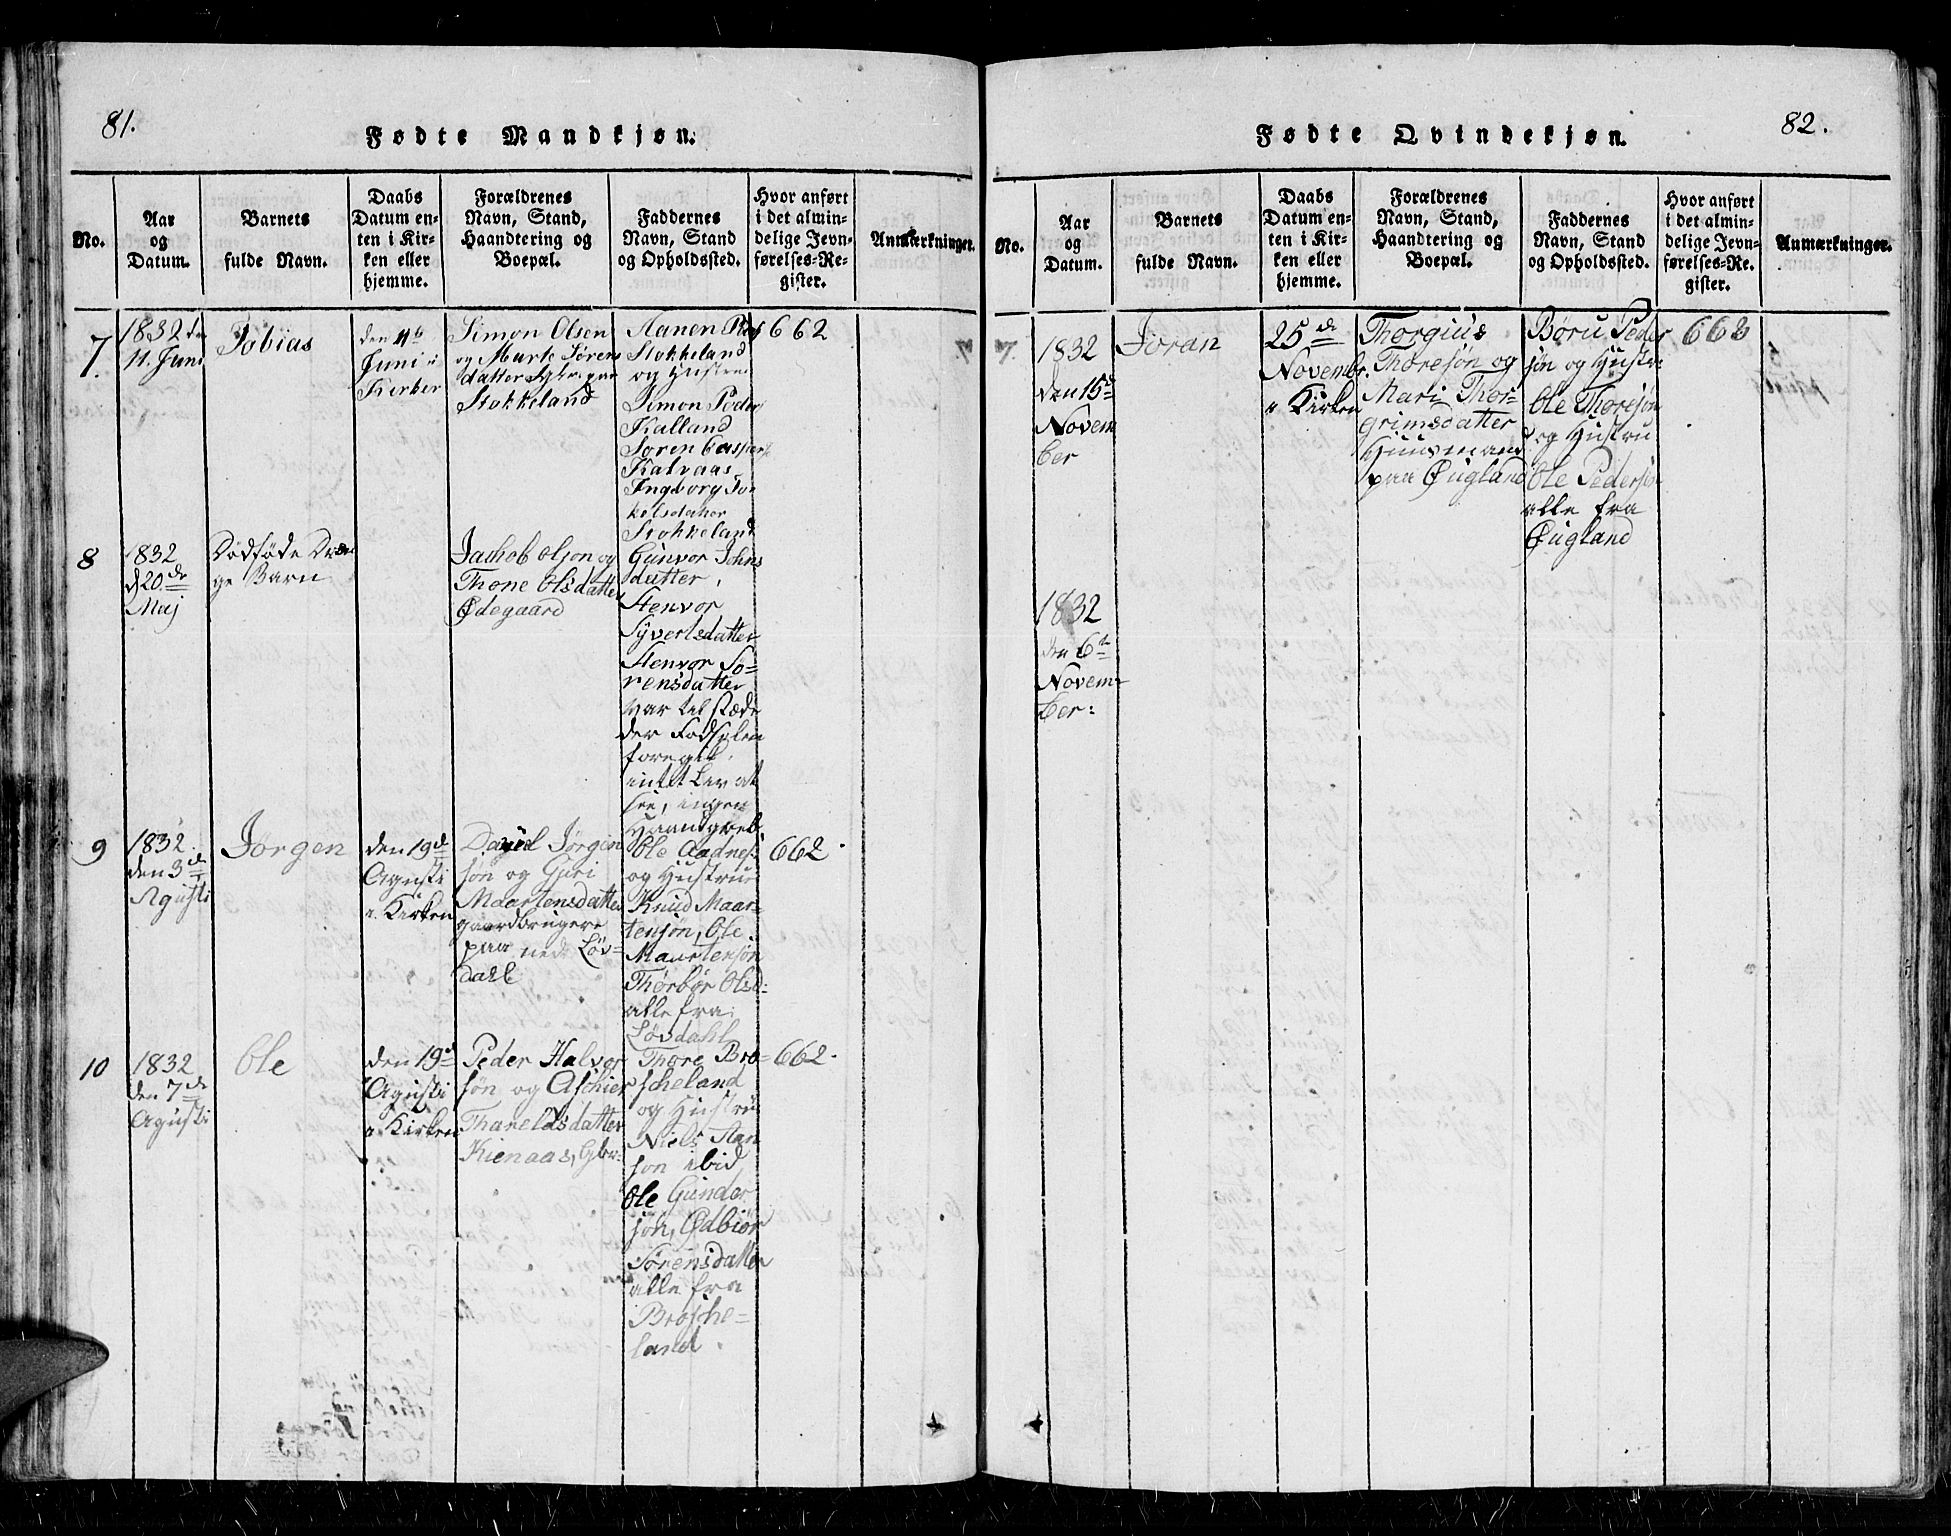 81.
Fødte Mandkjøn.
No.
Aar
og
Datum.
Barnets
fulde Navn.
Daabs
Datum en-
ten i Kir-
ken eller
hjemme.
Forældrenes
Navn, Stand,
Haandtering og
Boepæl.
Faddernes
Navn, Stand
og Opholdssted.
Hvor anført
i det almin-
delige Jevn-
førelses-Re-
gister.
Anmærkninger.
7.
1832 den
11. Juni
Tobias
den
Juni i
Simon Olsen
og Marte Sørens
datter
Stokkeland
Aanen
Stokkeland
og Hustru
Simon Peder
Kalland
Søren Casper
Kalvaas
Ingborg To-
kelsdatter
Stokkeland
662
8
1832
d 20de
Maj
Dødføde Dren
ge Barn
Jachob Olson og
Thone Olsdatter
Ødegaard
Gunvor Johns
datter,
Stenvor
Syvertsdatter
Stenvor So=
rensdatter
var til stæde
der Fødselen
foregik,
intet Liv at
see, ingen
Haandgreb
9
1832.
den 3de
Agusti
Jörgen
den 19d
Agusti
i Kirken
Daniel Jørgin
søn og Guri
Maartensdatter
gaardbrugere
paa nedr Løv=
dahl
Ole Aadnes:
og Hustrue
Knud Maar-
tensøn, Ole
Maartensøn
Thørbør Olsd:
alle fra
Løvdahl
662.
10
1832
den 7de
Agusti
Ole
den 19d
Agusti
i Kirken
Peder Halvor
søn og Aschier
Thareldsdatter
Kienaas, Gbr:
Thore Bro=
scheland
og Hustru
Niels Aan
son ibid
Ole Gunder
søn, Ødbiør
Sørensdatter
alle fra
Brosche=
land.
662.
82.
Fødte Qvindekjøn.
No.
Aar
og
Datum.
Barnets
fulde Navn.
Daabs
Datum en-
ten i Kir-
ken eller
hjemme.
Forældrenes
Navn, Stand,
Haandtering og
Boepæl.
Faddernes
Navn, Stand
og Opholdssted.
Hvor anført
i det almin-
delige Jevn-
førelses-Re-
gister.
Anmærkninger.
7.
1832
den 15d
Novem
ber
Joran
25de
Novembr.
i Kirken
Thorgius
Thoresøn og
Mari Thor-
grimsdatter
Huusmand
paa Øugland
Børu Peder
søn og Hustr:
Ole Thoresøn
og Hustru
Ole Pedersøn
alle fra
Øugland
663
1832
den 6te
Novem-
ber: